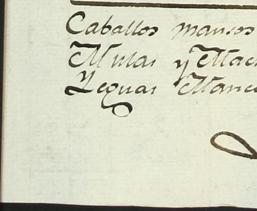 Caballos mansos
Mulas y Mac
Yeguas Mans